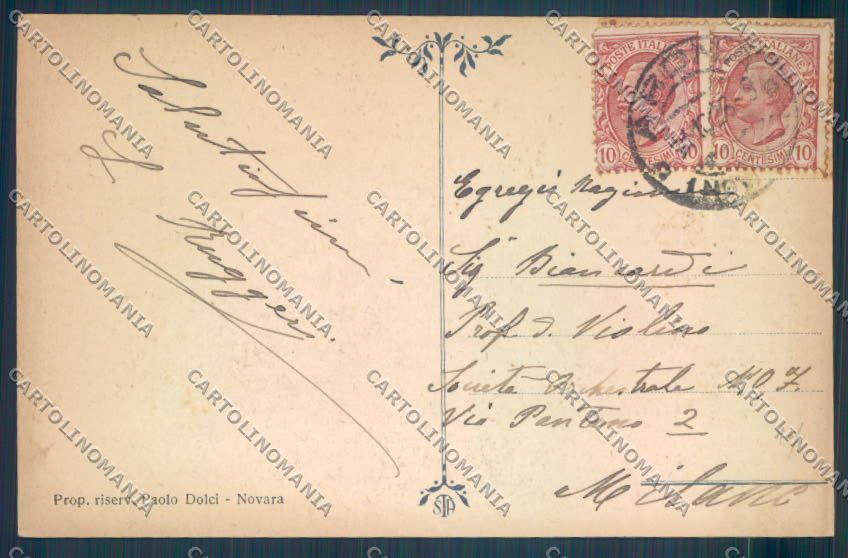 Saluti
L Ruggeri
Prop. riserv. Paolo Dolci - Novara
STA
POSTE ITALIANE
10 CENTESIMI 10
POSTE ITALIANE
10 CENTESIMI 10
Egregio
Sig Biancardi
Prof. d. Violino
Società Orchestrale
Via Pantano 2
Milano
CARTOLINOMANIA